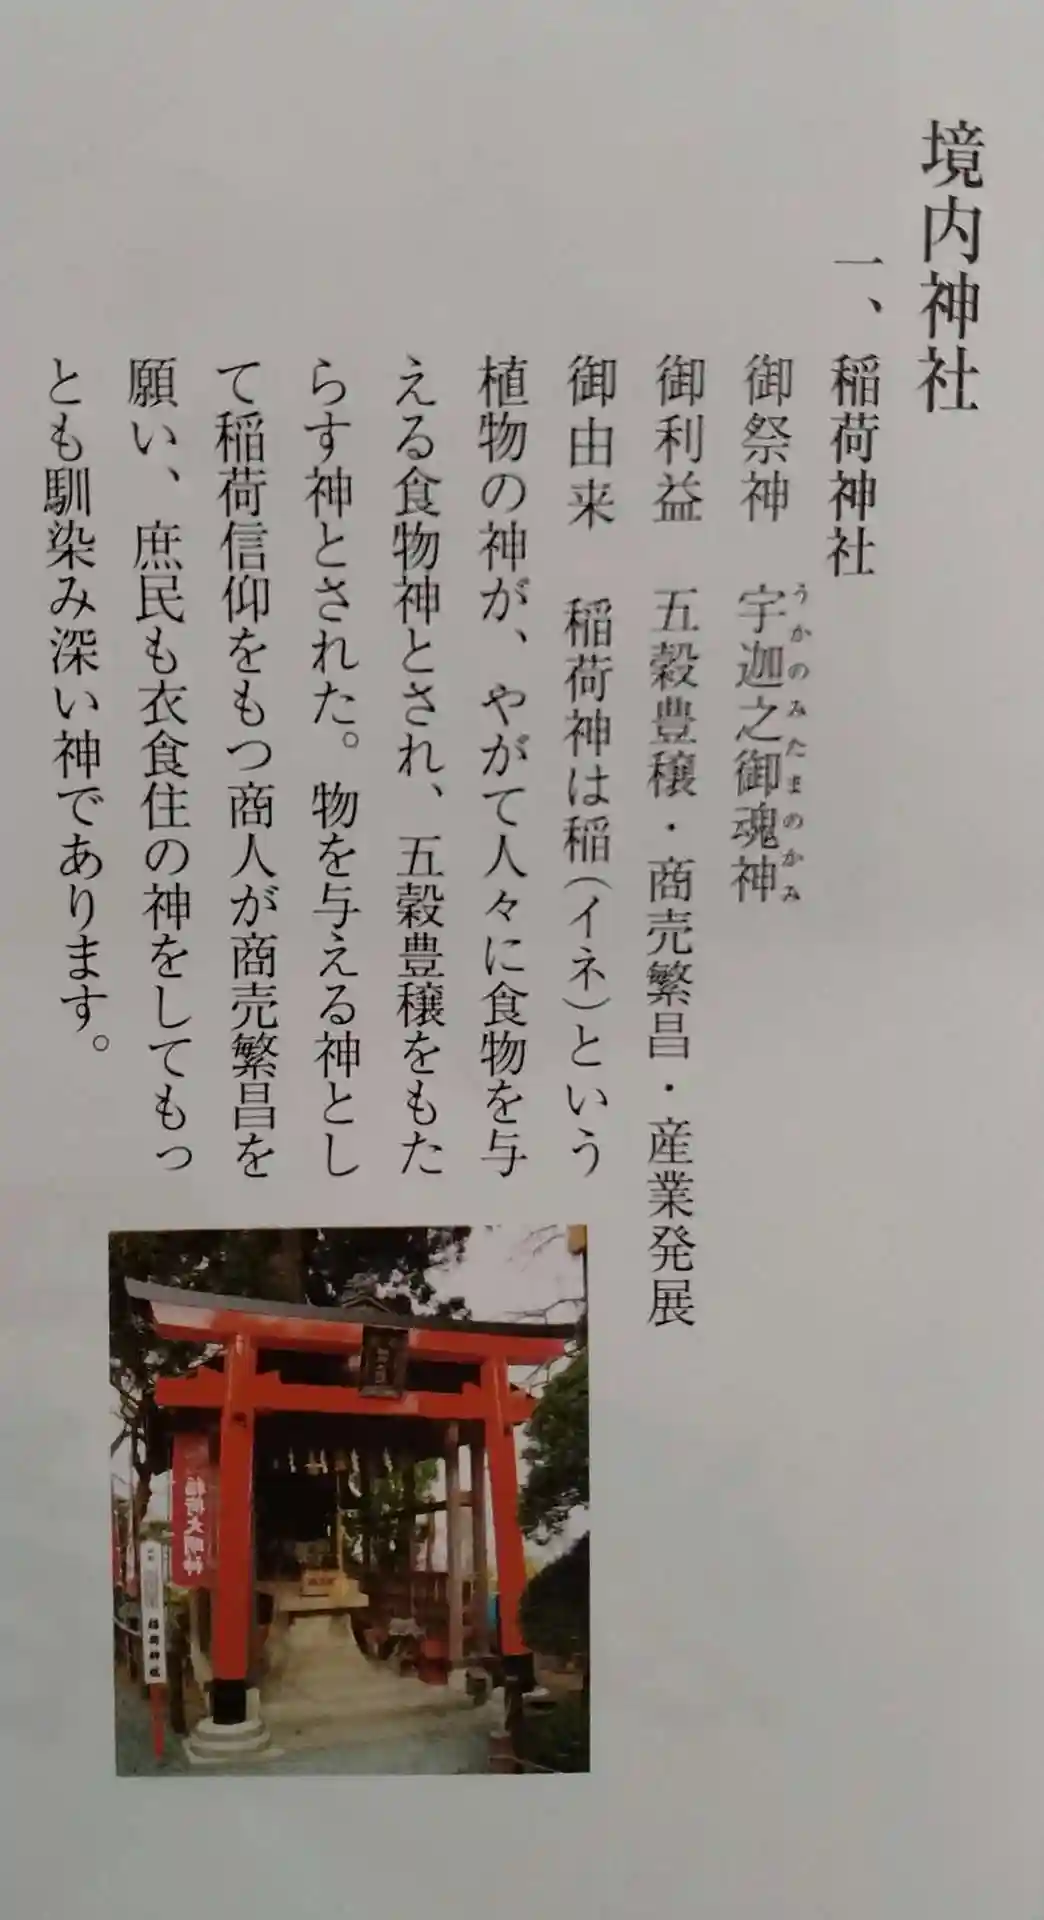 境内神社
一、稲荷神社
御祭神　宇迦之御魂神
うかのみたまのかみ
御利益　五穀豊穣・商売繁昌・産業発展
御由来　稲荷神は稲(イネ)という
植物の神が、やがて人々に食物を与
える食物神とされ、五穀豊穣をもた
らす神とされた。物を与える神とし
て稲荷信仰をもつ商人が商売繁昌を
願い、庶民も衣食住の神をしてもっ
とも馴染み深い神であります。
稲荷大明神
稲荷神社